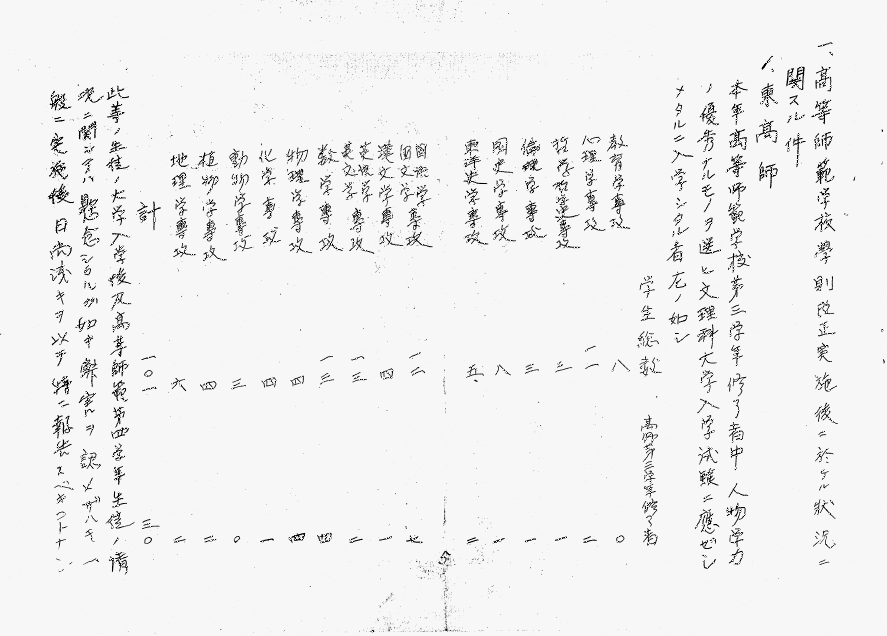 一、高等師範学校學則改正実施後ニ於ケル状況ニ
関スル件
1、東高師
本年高等師範学校第三学年修了者中人物学力
ノ優秀ナルモノヲ選ヒ文理科大学入学試験ニ應ゼシ
メタルニ入学シタル者左ノ如シ
学生総数 高師第三学年修了者
教育学専攻 八 〇
心理学専攻 一一 二
哲学哲学史専攻 三 一
倫理学専攻 三 一
國史学専攻 八 一
東洋史学専攻 五 二
5
国語学国文学専攻 一二 七
漢文学専攻 四 一
英語学英文学専攻 一三 二
数学専攻 一三 四
物理学専攻 四 四
化学専攻 四 一
動物学専攻 三 〇
植物学専攻 四 二
地理学専攻 六 二
計 一〇一 三〇
此等ノ生徒ノ大学入学後及高等師範第四学年生徒ノ情
況ニ関シテハ懸念シタルガ如キ弊害ヲ認メザルモ一
般ニ実施後日尚浅キヲ以テ特ニ報告スベキコトナシ